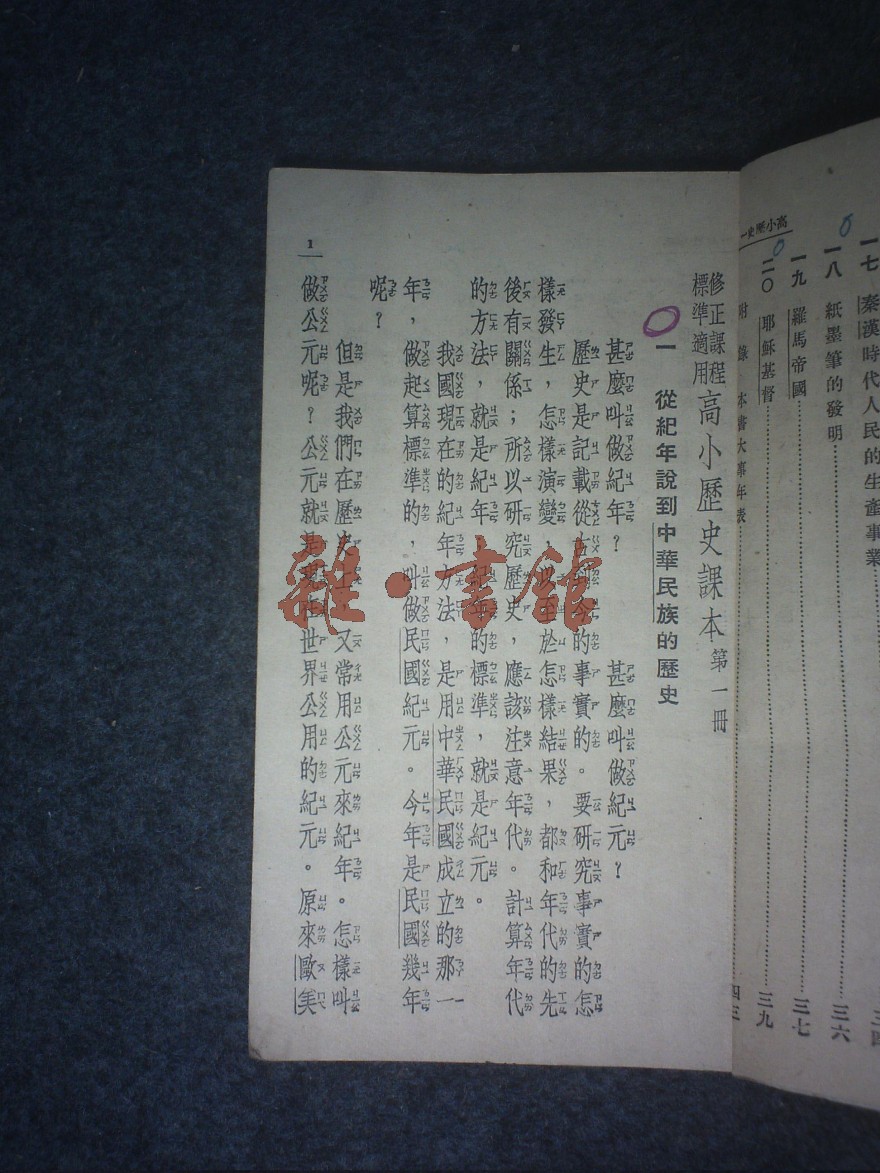 高小歷史一
一七 秦漢時代人民的生產事業
一八 紙墨筆的發明 三六
一九 羅馬帝國 三七
二〇 耶穌基督 三九
附錄 本書大事年表 四三
修正課程標準適用 高小歷史課本 第一冊
一 從紀年說到中華民族的歷史
甚麼叫做紀年? 甚麼叫做紀元?
歷史是記載從古到今的事實的。要研究事實的怎
樣發生,怎樣演變,以至於怎樣結果,都和年代的先
後有關係;所以研究歷史,應該注意年代。計算年代
的方法,就是紀年,紀年的標準,就是紀元。
我國現在的紀年方法,是用中華民國成立的那一
年,做起算標準的,叫做民國紀元。今年是民國幾年
呢?
但是我們在歷史上又常用公元來紀年。怎樣叫
做公元呢?公元就是現在世界公用的紀元。原來歐美
1
雜·書館